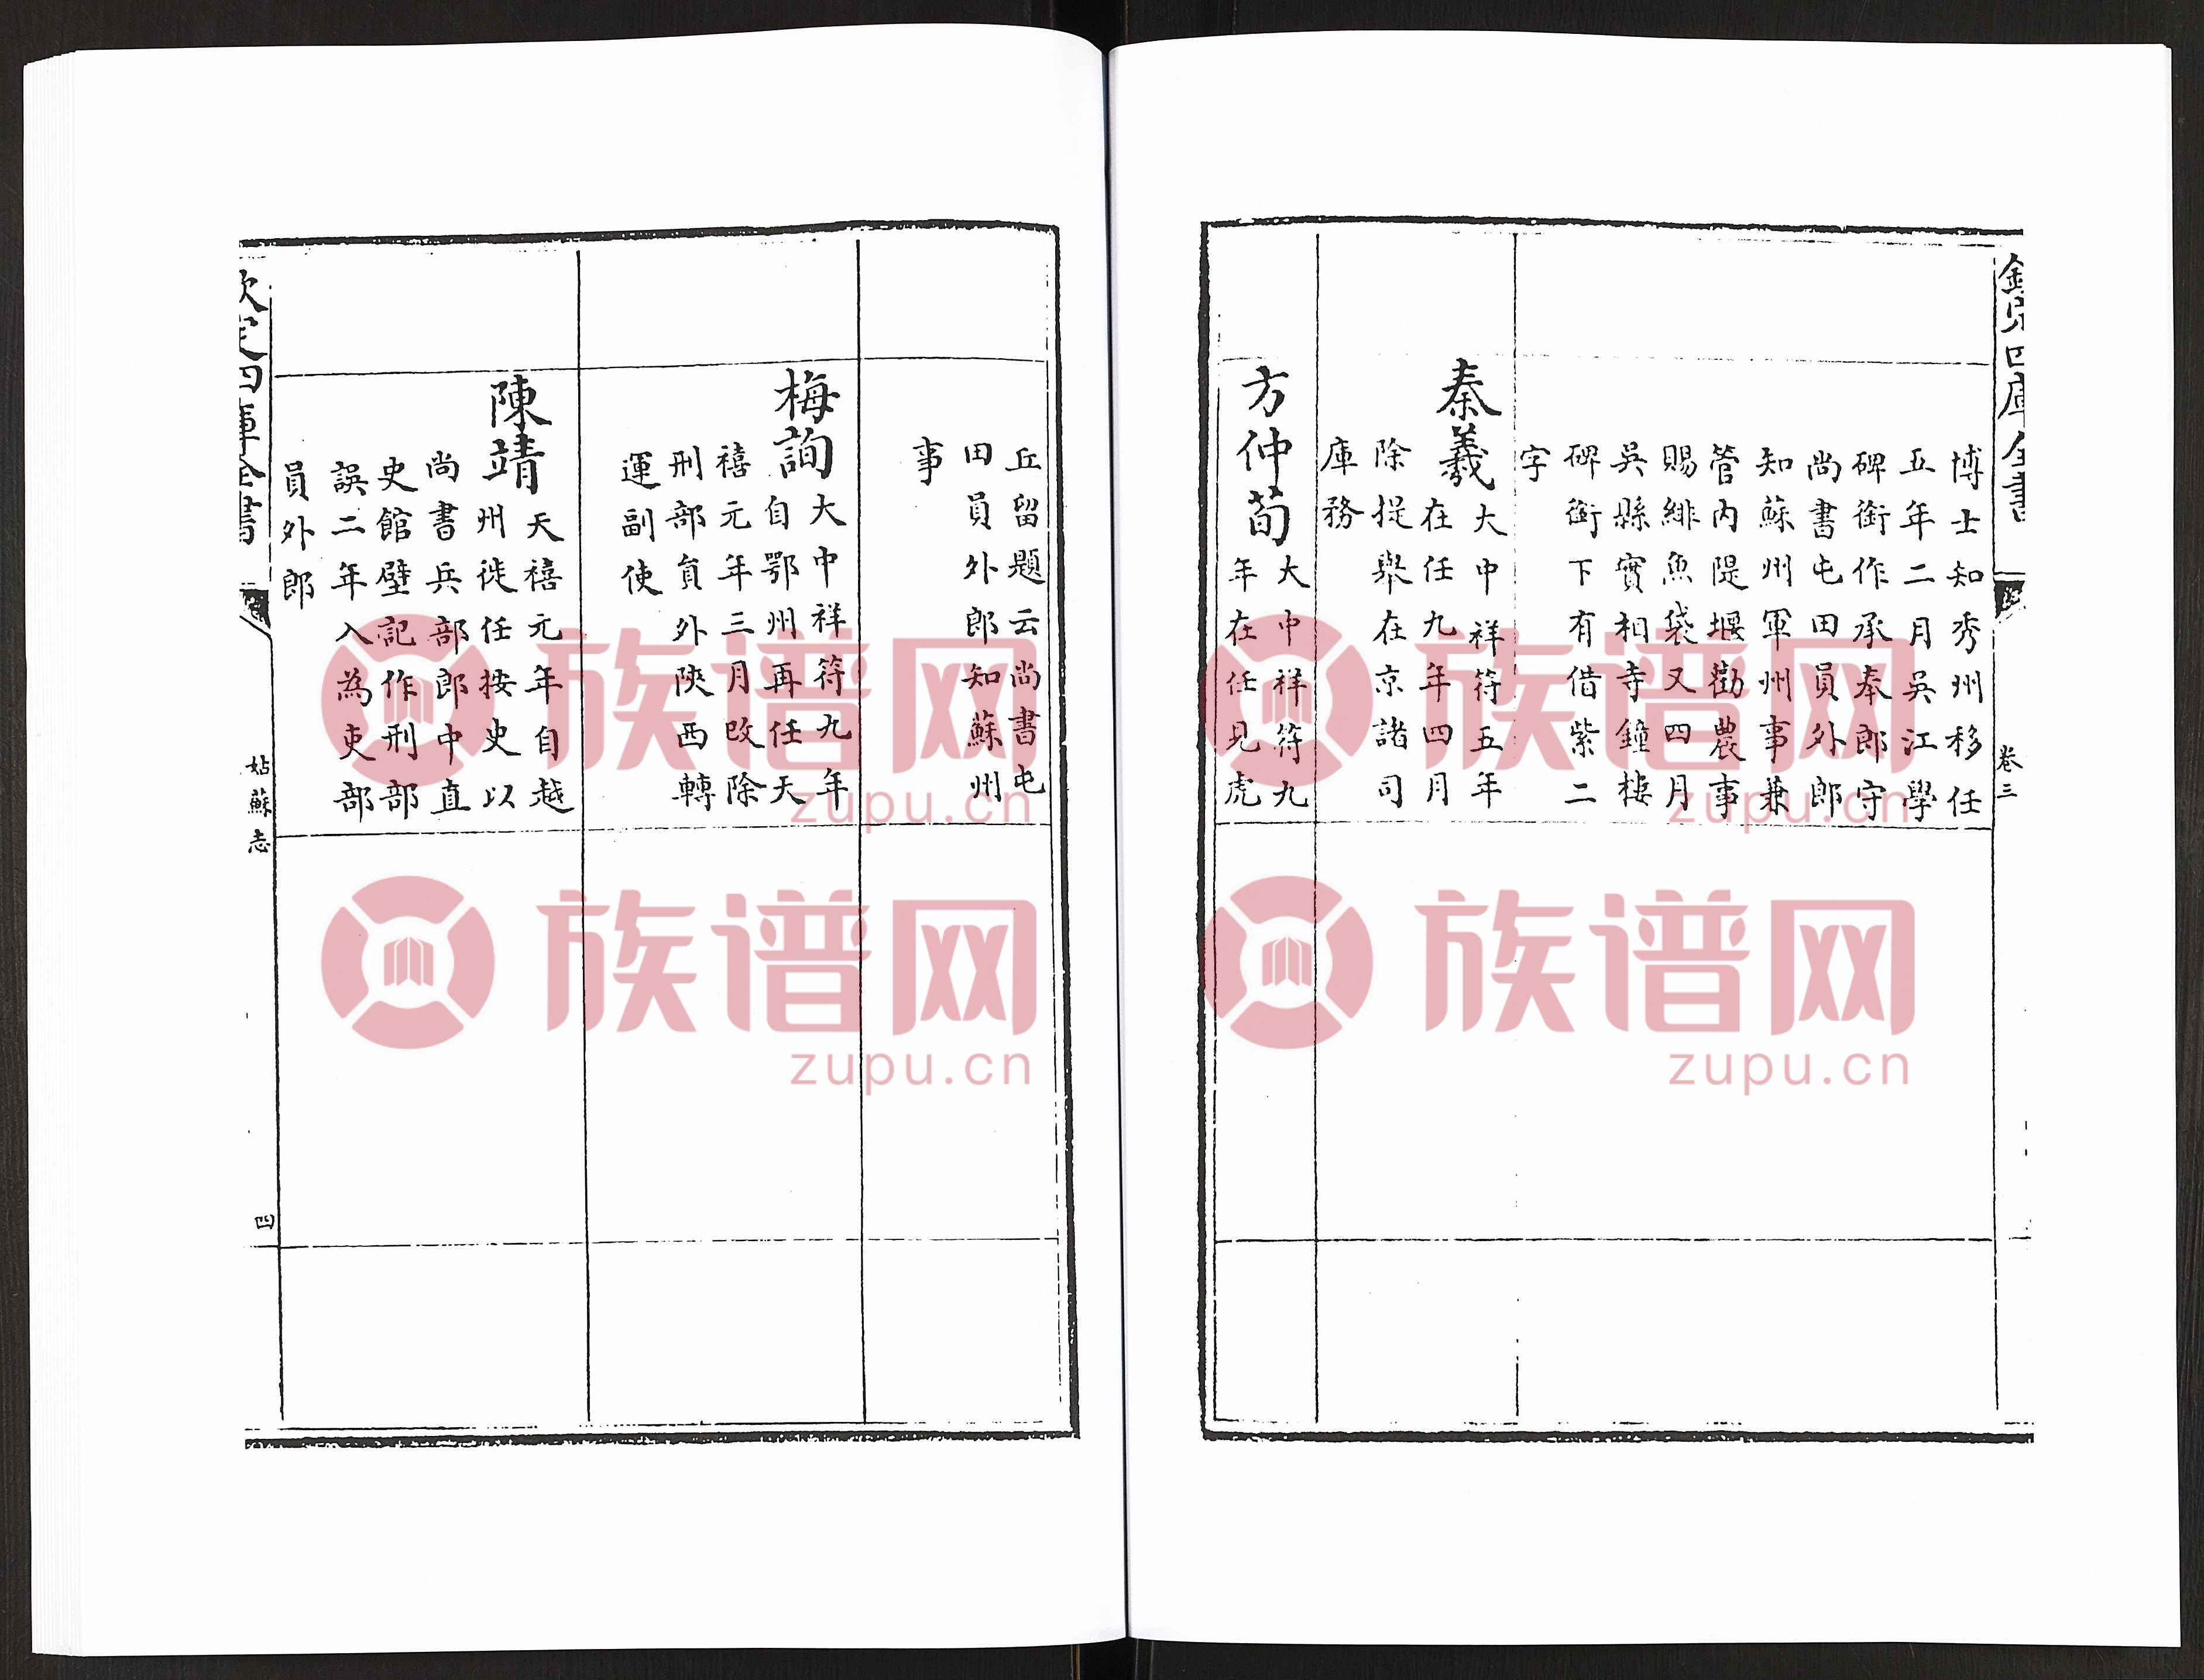 欽定四庫全書
卷三
博士知秀州移任
五年二月吳江學
碑銜作承奉郎守
尚書屯田員外郎
知蘇州軍州事兼
管內隄堰勸農事
賜緋魚袋又四月
吳縣實相寺鐘樓
碑銜下有借紫二
字
秦羲大中祥符五年
在任九年四月
除提舉在京諸司
庫務
方仲荀大中祥符九
年在任見虎
丘留題云尚書屯
田員外郎知蘇州
事
梅詢大中祥符九年
自鄂州再任天
禧元年三月改除
刑部員外陝西轉
運副使
陳靖天禧元年自越
州徙任按史以
尚書兵部郎中直
史館壁記作刑部
誤二年入為吏部
員外郎
欽定四庫全書
姑蘇志
四
族谱网
zupu.cn
族谱网
zupu.cn
族谱网
zupu.cn
族谱网
zupu.cn